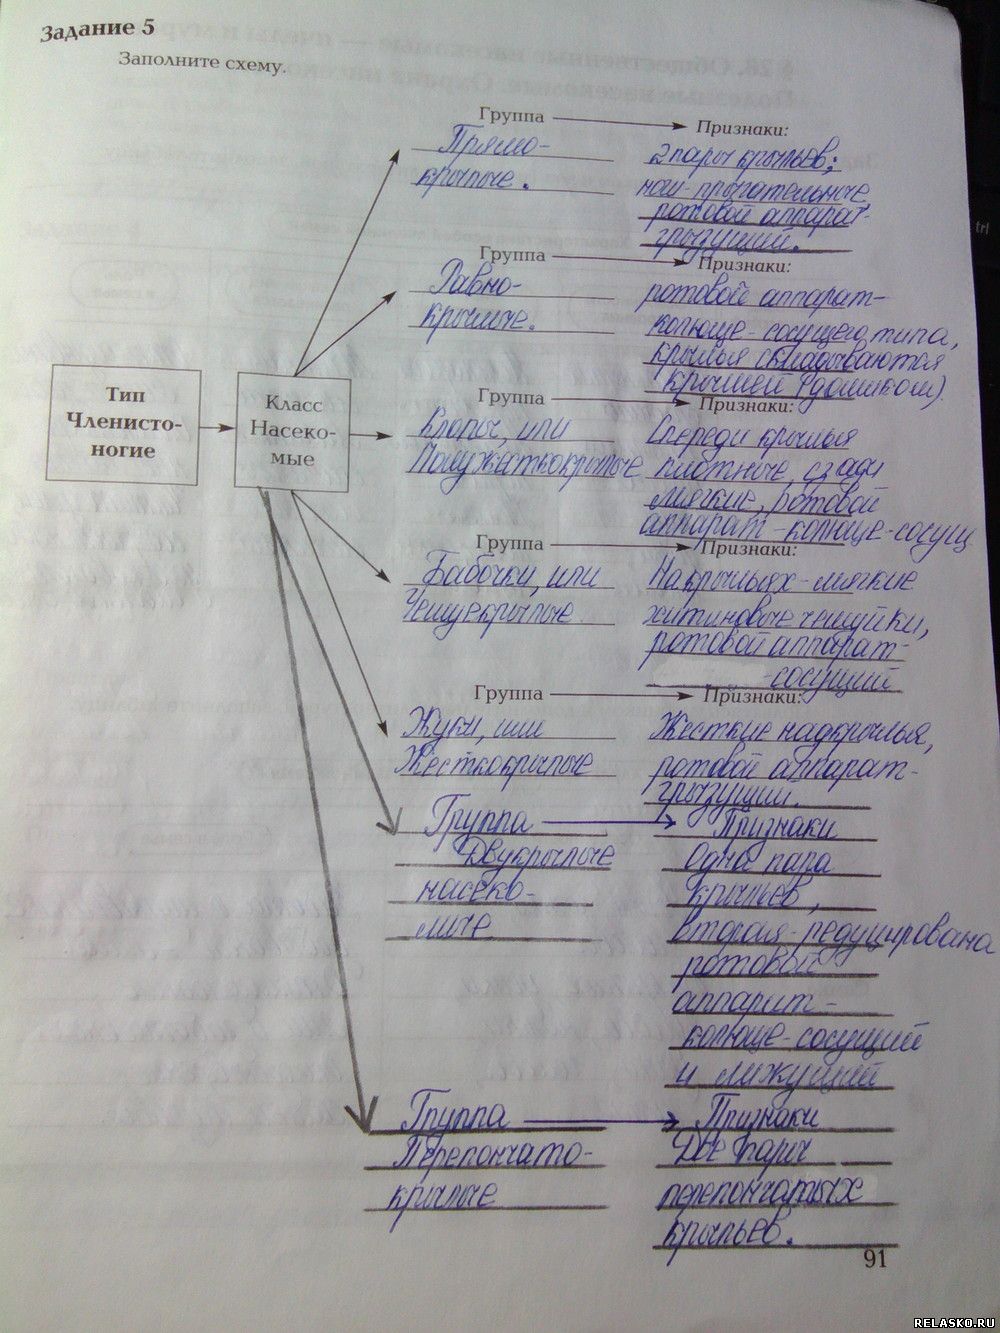 Задание 5
Заполните схему.
Группа Признаки:
Прямо- 2 пары крыльев;
крылые. ноги-прыгательные
ротовой аппарат-
грызущий.
Группа Признаки:
Равно- ротовой аппарат-
крылые. колюще-сосущего типа,
крылья складываются
крышей (домиком).
Тип
Членисто-
ногие
Класс
Насеко-
мые
Группа Признаки:
Клопы, или Спереди крылья
Полужесткокрылые плотные, сзади
мягкие, ротовой
аппарат-колюще-сосущ
Группа Признаки:
Бабочки, или На крыльях-мягкие
Чешуекрылые хитиновые чешуйки,
ротовой аппарат-
-сосущий
Группа Признаки:
Жуки, или Жесткие надкрылья,
Жесткокрылые ротовой аппарат-
грызущий.
Группа Признаки
Двукрылые Одна пара
насеко- крыльев,
мые вторая-редуцирована
ротовой
аппарат-
колюще-сосущий
и лижущий
Группа Признаки
Перепончато- Две пары
крылые перепончатых
крыльев.
91
RELASKO.RU